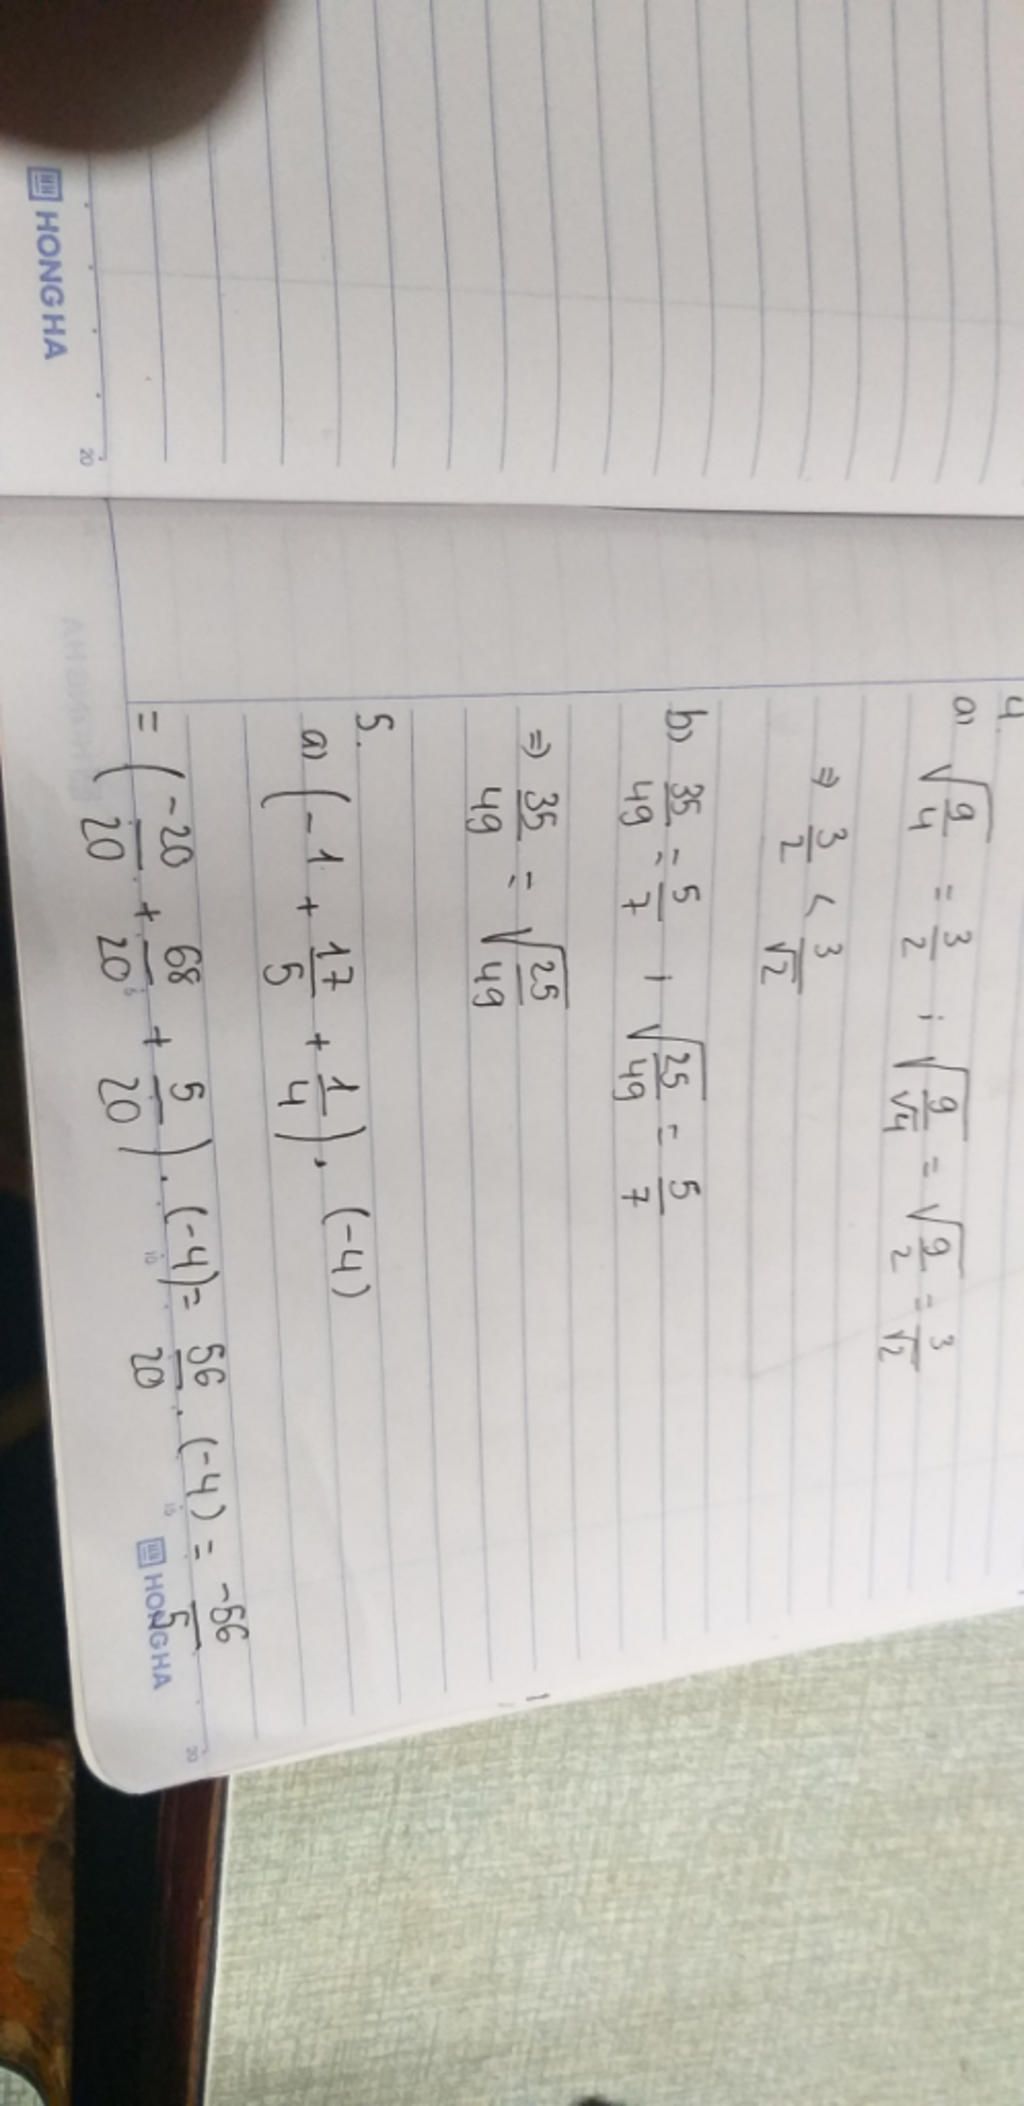 4.
a) √(9/4) = 3/2 ; √(9/√4) = √(9/2) = 3/√2
⇒ 3/2 < 3/√2
b) 35/49 = 5/7 ; √(25/49) = 5/7
⇒ 35/49 = √(25/49)
5.
a) (-1 + 17/5 + 1/4) . (-4)
= (-20/20 + 68/20 + 5/20) . (-4) = 56/20 . (-4) = -56/5
HONG HA
20
HONG HA
20